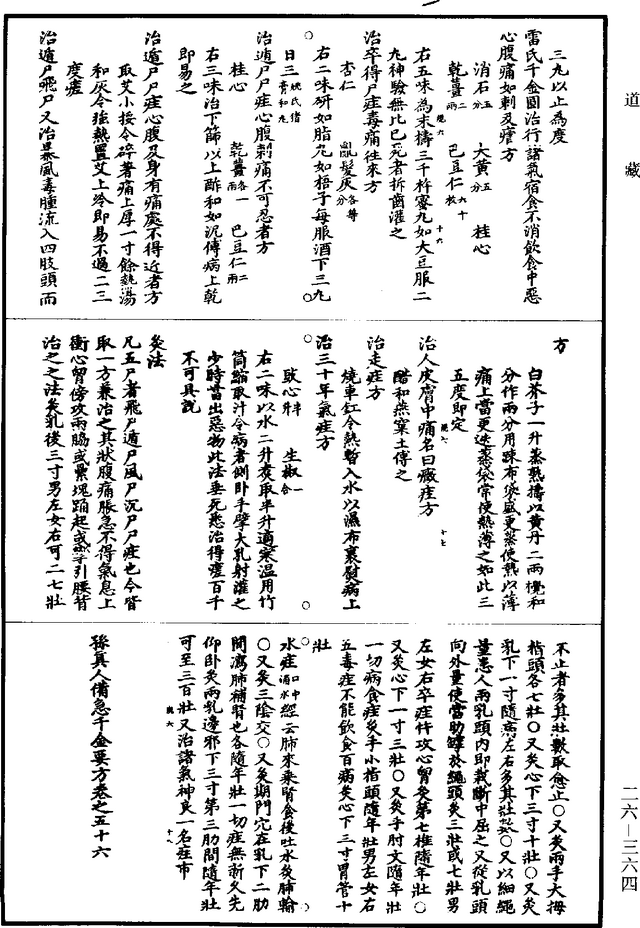 道藏
三九以止為度
雷氏千金圓治行諸氣宿食不消飲食中惡
心腹痛如刺及瘧方
消石五分 大黃五分 桂心
乾薑二兩 巴豆仁六十枚
右五味為末擣三千杵蜜丸如大豆服二
九神驗無比已死者拆齒灌之
治卒得尸疰毒痛往來方
杏仁 亂髮灰各等分
右二味研如脂丸如梧子每服酒下三九
日三姚氏猪膏和丸
治遁尸尸疰心腹刺痛不可忍者方
桂心 乾薑各一兩 巴豆仁二兩
右三味治下篩以上酢和如泥傅病上乾
即易之
治遁尸尸疰心腹及身有痛處不得近者方
取艾小挼令碎著痛上厚一寸餘熱湯
和灰令強熱置艾上冷即易不過二三
度瘥
治遁尸飛尸又治暴風毒腫流入四肢頭面
方
白芥子一升蒸熟擣以黃丹二兩攪和
分作兩分用踈布袋盛更蒸使熱以薄
痛上當更迭蒸袋常使熱薄之如此三
五度即定
治人皮膚中痛名曰癥疰方
醋和燕窠土傅之
治走疰方
燒車釭令熱暫入水以濕布裹熨病上
治三十年氣疰方
豉心半升 生椒一合
右二味以水二升煑取半升適寒溫用竹
筒縮取汁令病者側卧手擘大孔射灌之
少時當出惡物此法垂死悉治得瘥百千
不可具說
灸法
凡五尸者飛尸遁尸風尸沉尸尸疰也今皆
取一方兼治之其狀腹痛脹急不得氣息上
衝心胷傍攻兩脇或累塊踊起或攣引腰背
治之之法灸乳後三寸男左女右可二七壯
不止者多其壯數取愈止○又灸兩手大拇
指頭各七壯○又灸心下三寸十壯○又灸
乳下一寸隨病左右多其壯數○又以細繩
量患人兩乳頭內即裁斷中屈之又從乳頭
向外量使當肋罅於繩頭灸三壯或七壯男
左女右卒疰忤攻心胷灸第七椎隨年壯○
又灸心下一寸三壯○又灸手肘文隨年壯
一切病食疰灸手小指頭隨年壯男左女右
五毒疰不能飲食百病灸心下三寸胃管十
壯
水疰口中涌水經云肺來乘腎食後吐水灸肺輸
○又灸三陰交○又灸期門穴在乳下二肋
間瀉肺補腎也各隨年壯一切疰無新久先
仰卧灸兩乳邊邪下三寸第三肋間隨年壯
可至三百壯又治諸氣神良一名疰市
孫真人備急千金要方卷之五十六
二六—三六四